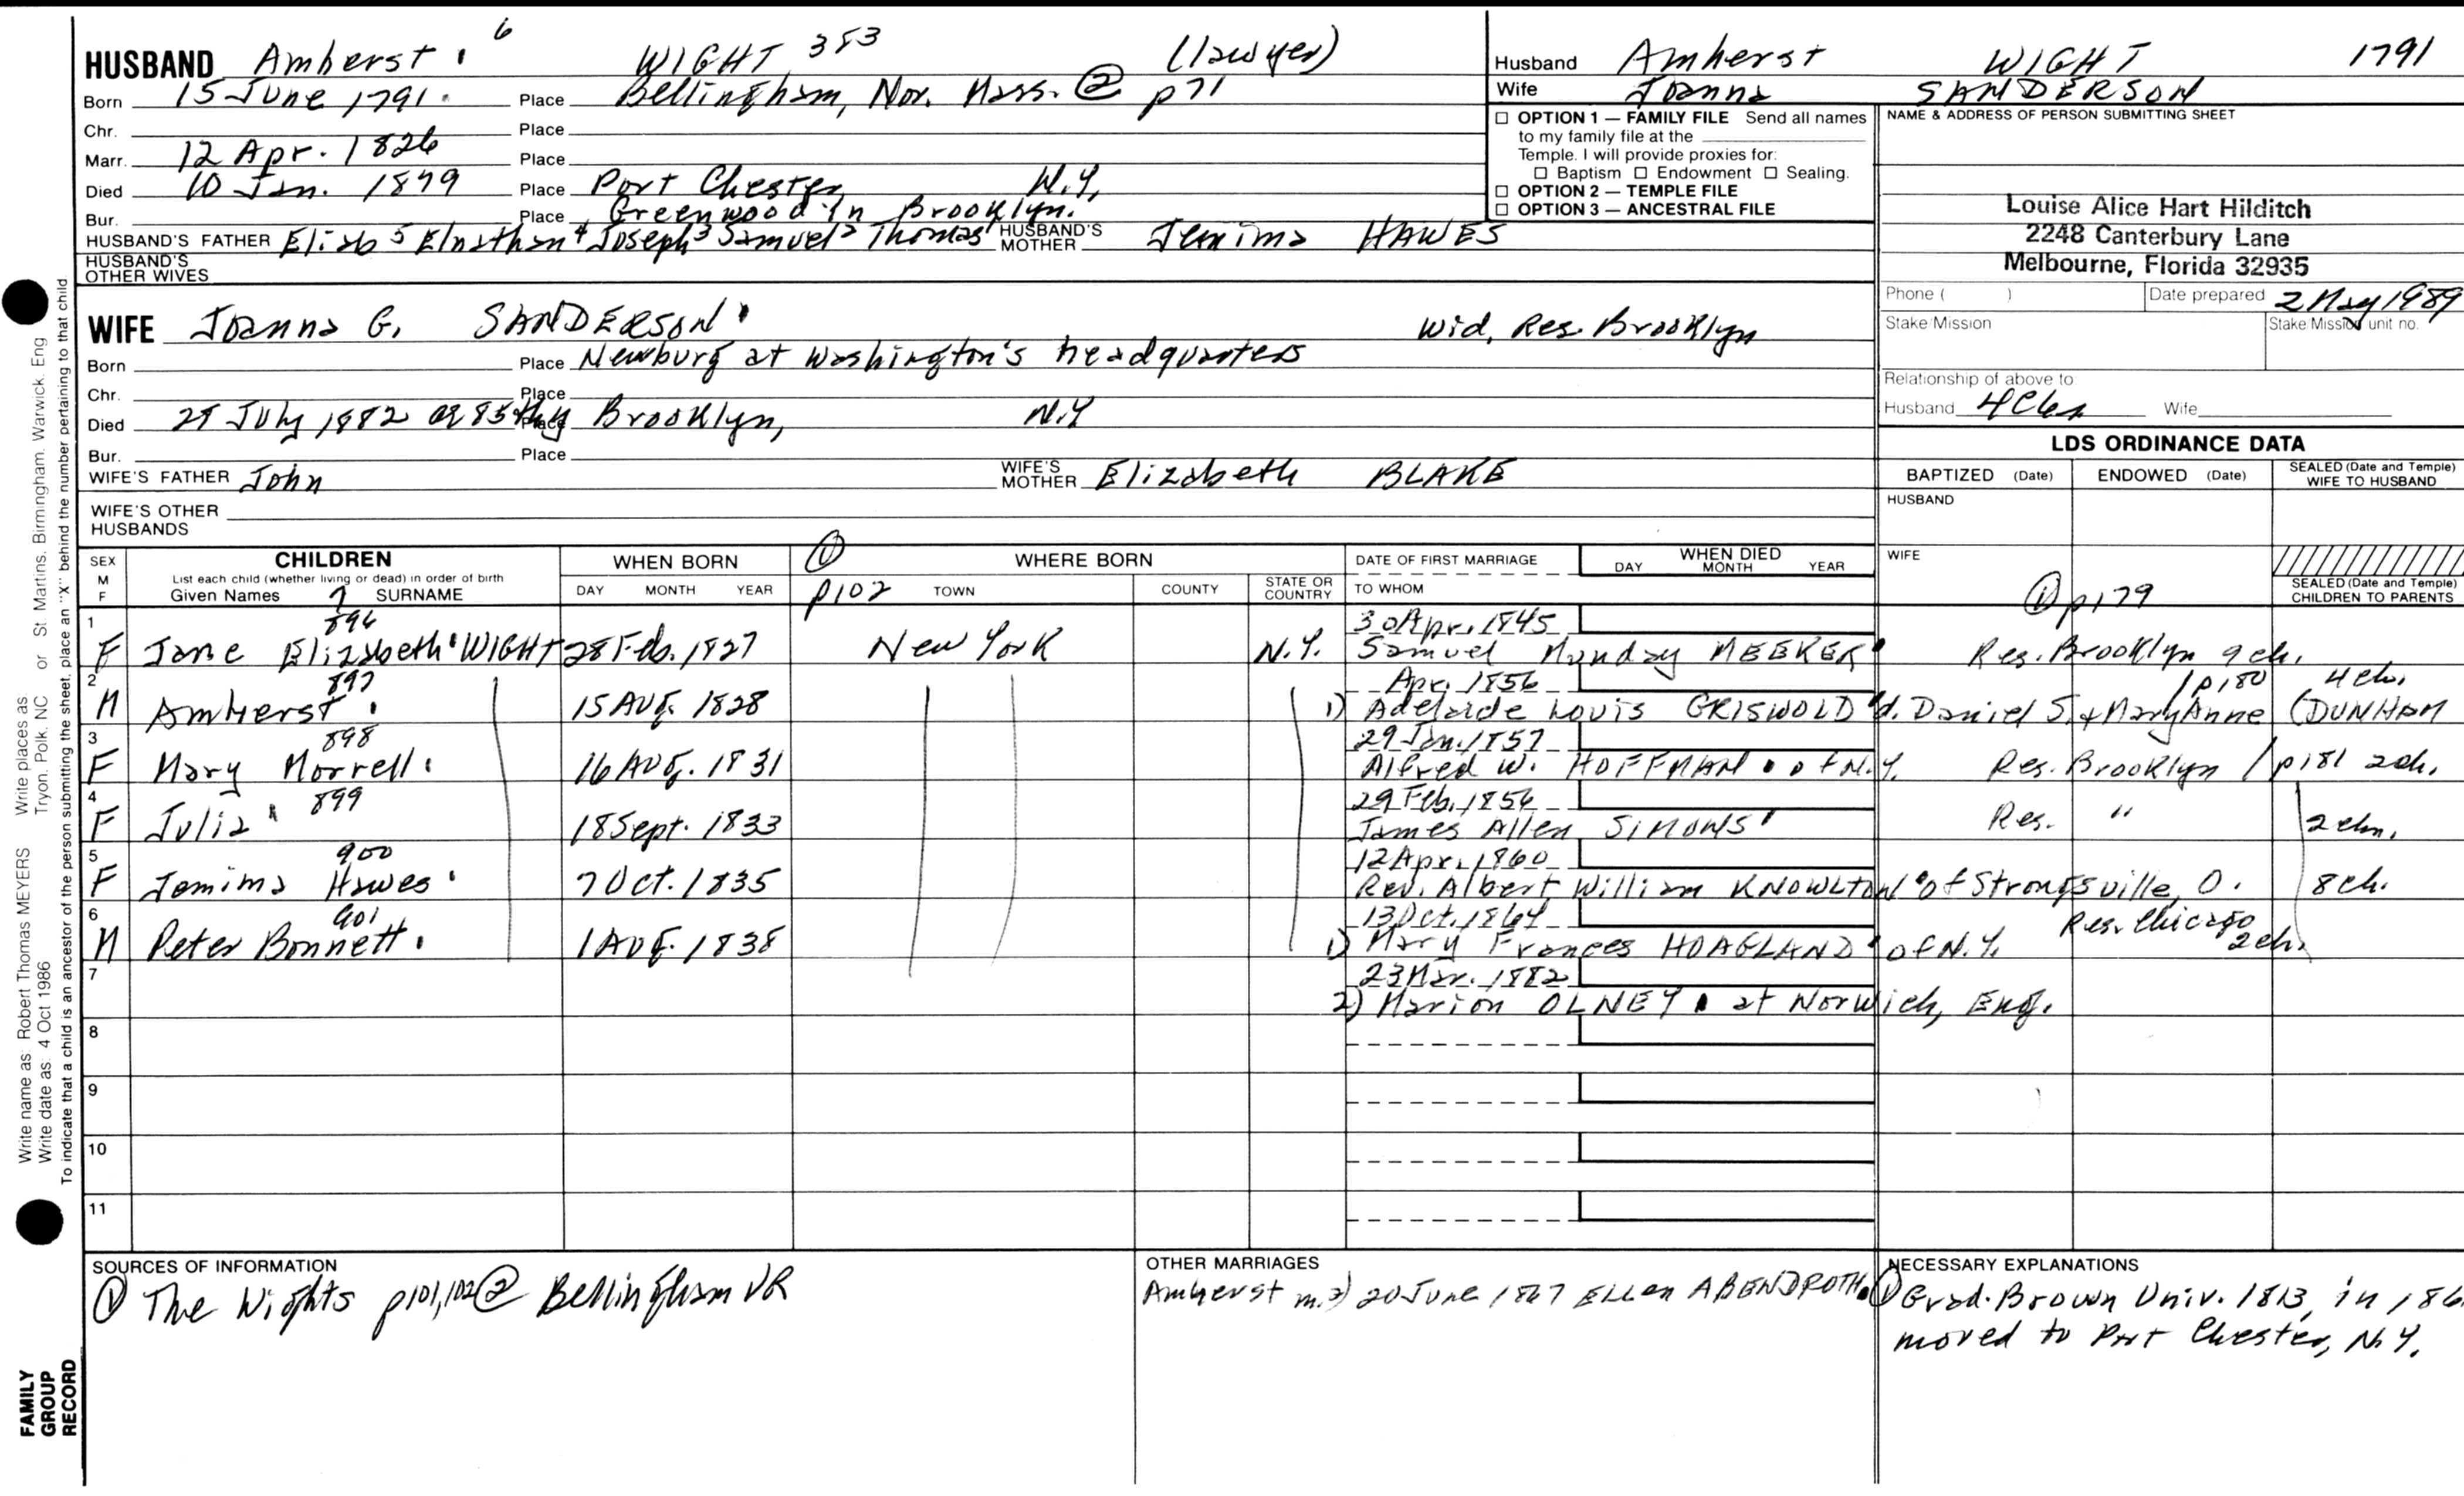 HUSBAND Amherst 6 WIGHT 383 (lawyer)
Born 15 June 1791 Place Bellingham, Nor. Mass. ② p71
Chr. Place
Marr. 12 Apr. 1826 Place
Died 10 Jan. 1879 Place Port Chester, N.Y.
Bur. Place Greenwood in Brooklyn.
HUSBAND'S FATHER Eliab 5 Elnathan 4 Joseph 3 Samuel 2 Thomas 1 HUSBAND'S MOTHER Jemima HAWES
HUSBAND'S OTHER WIVES
WIFE Joanna G. SANDERSON Wid, Res. Brooklyn
Born Place Newburg at Washington's headquarters
Chr. Place
Died July 1882 Place Brooklyn, N.Y
Bur. Place
WIFE'S FATHER John WIFE'S MOTHER Elizabeth BLAKE
WIFE'S OTHER HUSBANDS
Husband Amherst WIGHT 1791
Wife Joanna SANDERSON
☐ OPTION 1 — FAMILY FILE Send all names
to my family file at the
Temple. I will provide proxies for:
☐ Baptism ☐ Endowment ☐ Sealing.
☐ OPTION 2 — TEMPLE FILE
☐ OPTION 3 — ANCESTRAL FILE
NAME & ADDRESS OF PERSON SUBMITTING SHEET
Louise Alice Hart Hilditch
2248 Canterbury Lane
Melbourne, Florida 32935
Phone ( ) Date prepared 2 May 1989
Stake/Mission Stake/Mission unit no.
Relationship of above to
Husband Wife
LDS ORDINANCE DATA
BAPTIZED (Date) ENDOWED (Date) SEALED (Date and Temple) WIFE TO HUSBAND
HUSBAND
WIFE
SEALED (Date and Temple) CHILDREN TO PARENTS
① p179
SEX M F
CHILDREN
List each child (whether living or dead) in order of birth
Given Names 7 SURNAME
WHEN BORN
DAY MONTH YEAR
① p102
WHERE BORN
TOWN COUNTY STATE OR COUNTRY
DATE OF FIRST MARRIAGE
TO WHOM
WHEN DIED
DAY MONTH YEAR
1 896 30 Apr. 1845
F Jane Elizabeth WIGHT 28 Feb. 1827 New York N.Y. Samuel Munday MEEKER Res. Brooklyn 9 ch.
2 897 Apr. 1856 / p180 4 ch.
M Amherst 15 Aug. 1828 1) Adelaide Louis GRISWOLD d. Daniel S. & Mary Anne (DUNHAM
3 898 29 Jan. 1857
F Mary Morrell 16 Aug. 1831 Alfred W. HOFFMAN of N.Y. Res. Brooklyn / p181 2 ch.
4 899 29 Feb. 1856
F Julia 18 Sept. 1833 James Allen SIMONS Res. " 2 chn.
5 900 12 Apr. 1860
F Jemima Hawes 7 Oct. 1835 Rev. Albert William KNOWLTON of Strongsville, O. 8 ch.
6 901 13 Oct. 1864 Res. Chicago
M Peter Bonnett 1 Aug. 1838 1) Mary Frances HOAGLAND of N.Y. 2 ch.
7 23 Mar. 1882
2) Marion OLNEY at Norwich, Eng.
8
9
10
11
SOURCES OF INFORMATION
① The Wights p101,102 ② Bellingham VR
OTHER MARRIAGES
Amherst m. 2) 20 June 1867 ELLEN ABENDROTH
NECESSARY EXPLANATIONS
① Grad. Brown Univ. 1813, in
moved to Port Chester, N.Y.
Write name as: Robert Thomas MEYERS Write places as: Tryon, Polk, NC or St. Martins, Birmingham, Warwick, Eng
Write date as: 4 Oct 1986
To indicate that a child is an ancestor of the person submitting the sheet, place an "X" behind the number pertaining to that child
FAMILY
GROUP
RECORD